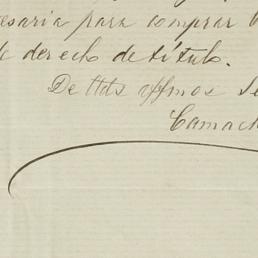 esaria para comprar
de derecho de título.
De Uds Afmos
Camach